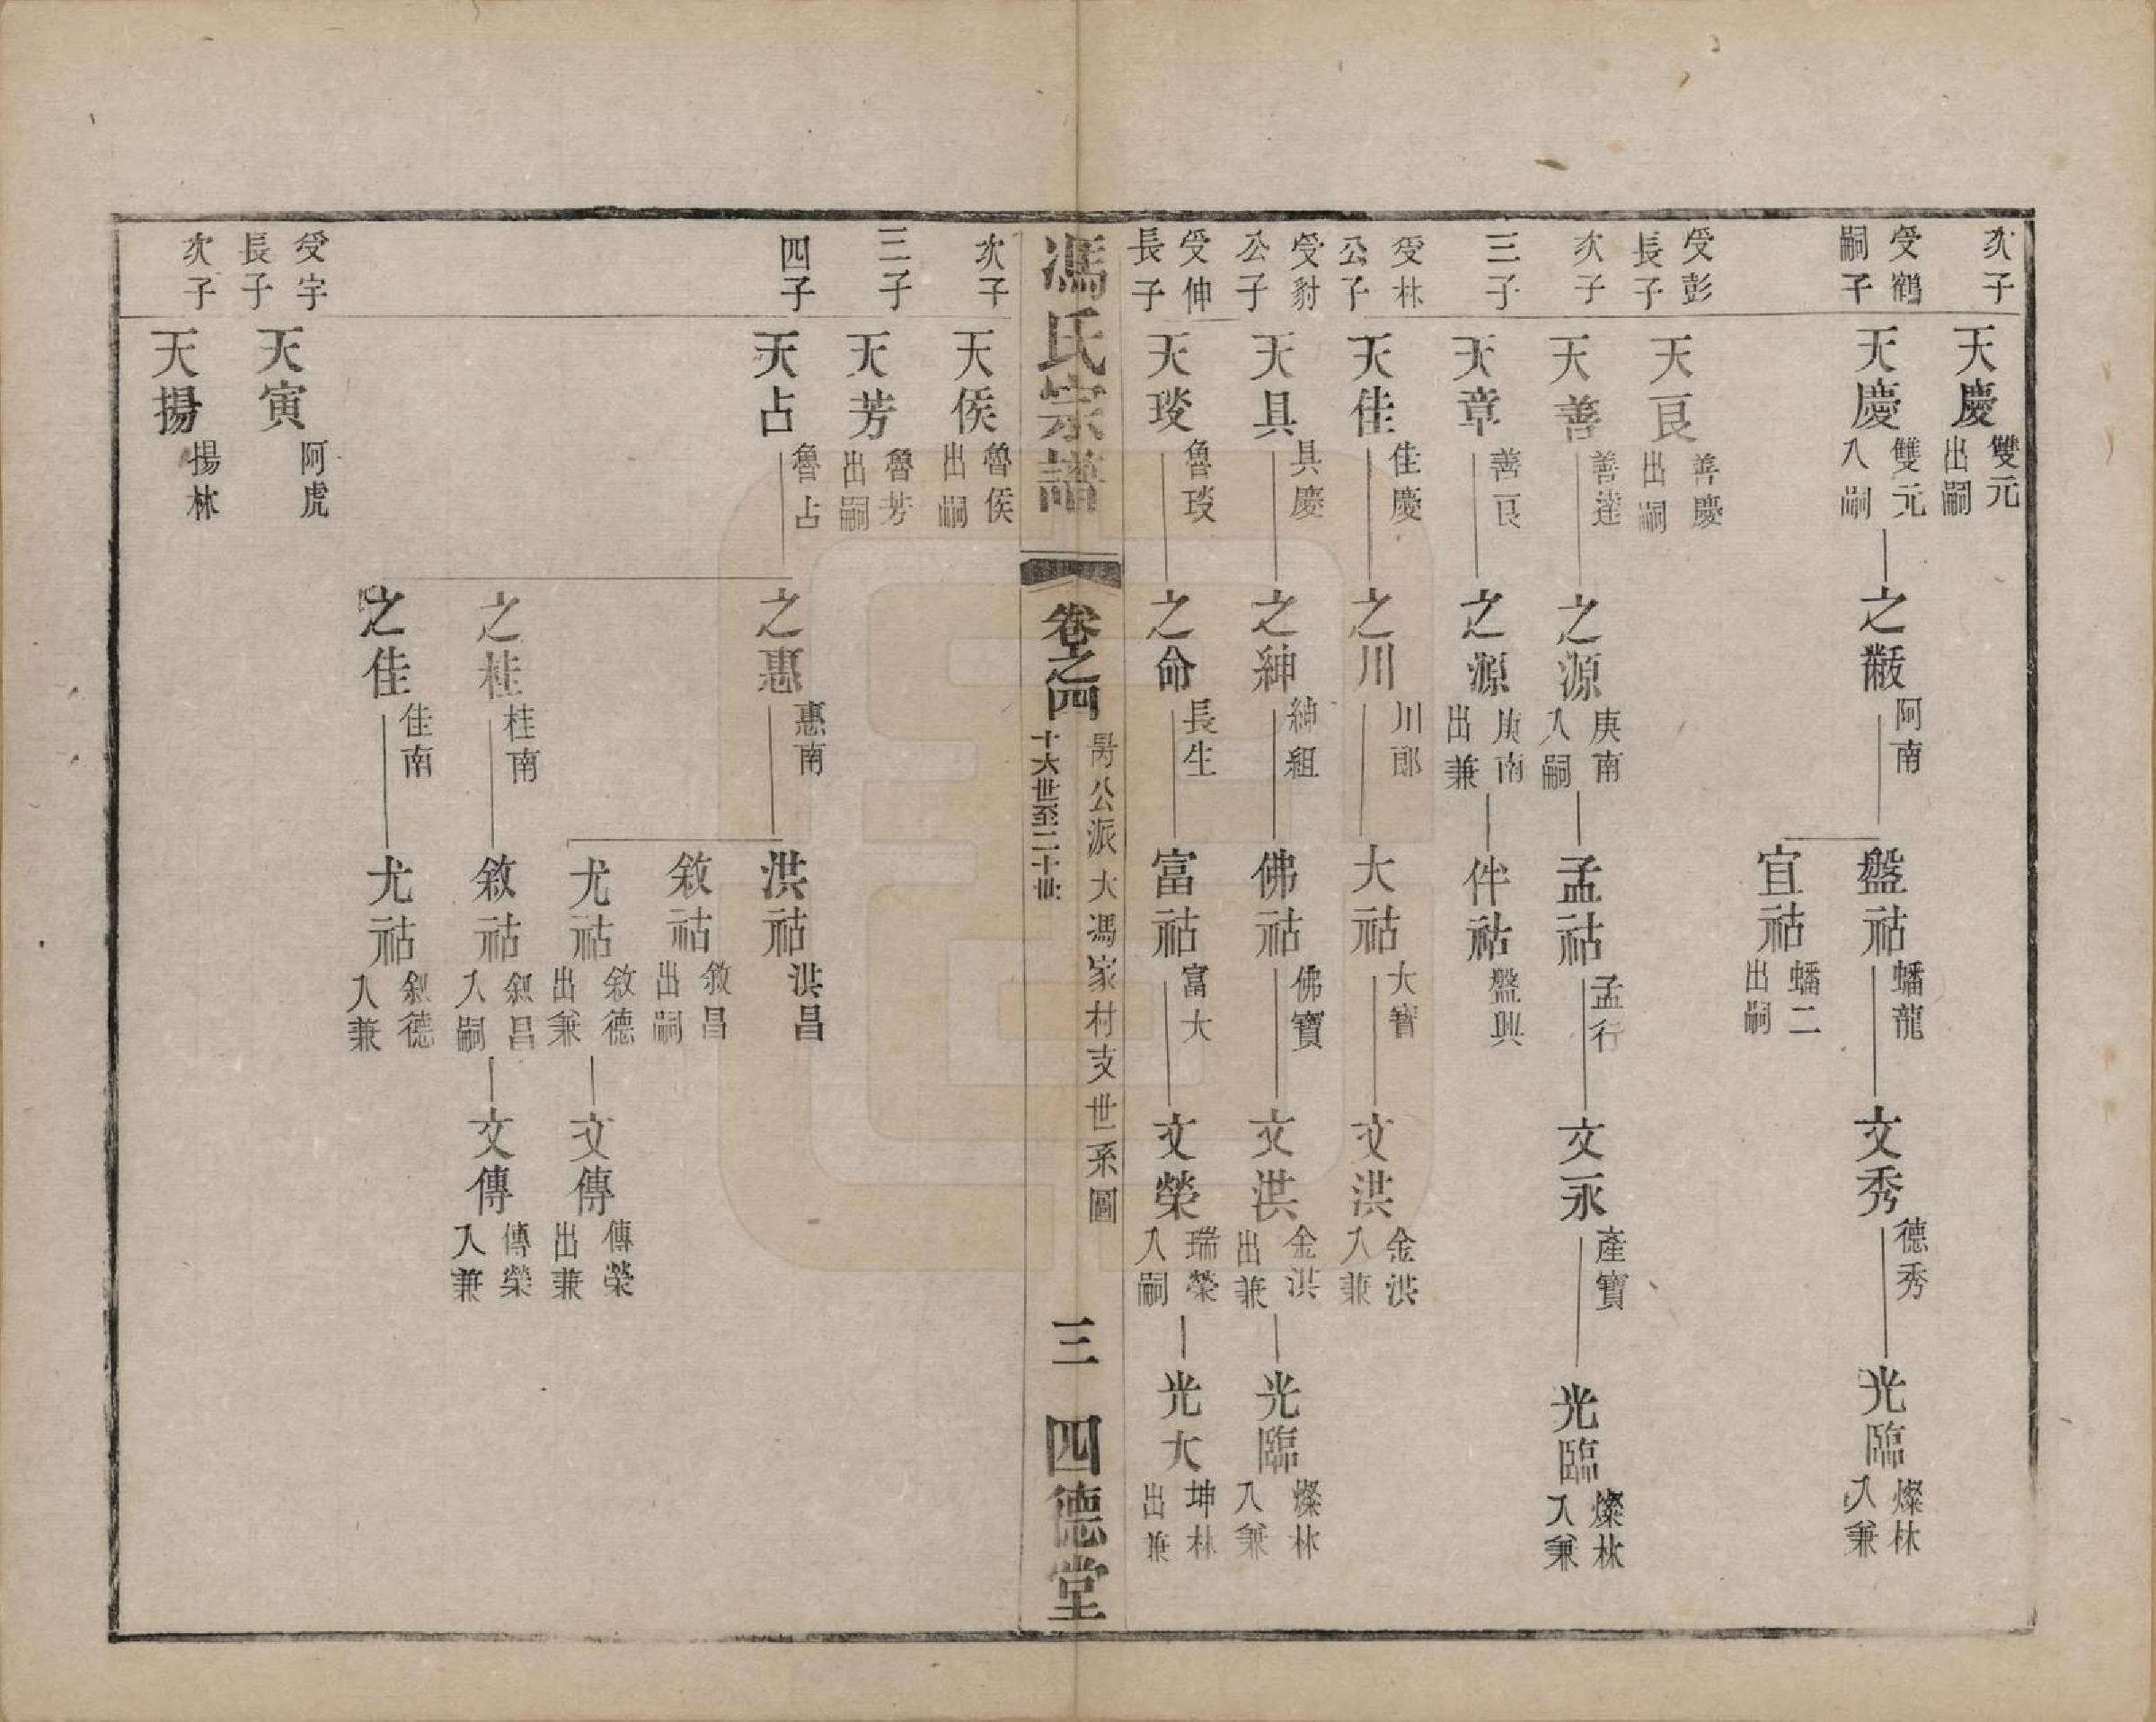 次子
天慶
雙元
出嗣
受鶴
嗣子
天慶
雙元
入嗣
之黻
阿南
盤祜
蟠龍
文秀
德秀
光臨
燦林
入兼
宜祜
蟠二
出嗣
受彭
長子
天良
善慶
出嗣
次子
天善
善達
之源
庚南
入嗣
孟祜
孟行
文永
產寶
光臨
燦林
入兼
三子
天章
善良
之源
庚南
出兼
伴祜
盤興
受林
公子
天佳
佳慶
之川
川郎
大祜
大寶
文洪
金洪
入兼
受豺
公子
天具
具慶
之紳
紳組
佛祜
佛寶
文洪
金洪
出兼
光臨
燦林
入兼
受伸
長子
天琰
魯琰
之命
長生
富祜
富大
文榮
瑞榮
入嗣
光大
坤林
出兼
馮氏宗譜
卷之四
昺公派大馮家村支世系圖
十六世至二十世
三
四德堂
次子
天侯
魯侯
出嗣
三子
天芳
魯芳
出嗣
四子
天占
魯占
之惠
惠南
洪祜
洪昌
敘祜
敘昌
出嗣
尤祜
敘德
出兼
文傳
傳榮
出兼
之桂
桂南
敘祜
敘昌
入嗣
文傳
傳榮
入兼
之佳
佳南
尤祜
敘德
入兼
受宇
長子
天寅
阿虎
次子
天揚
揚林